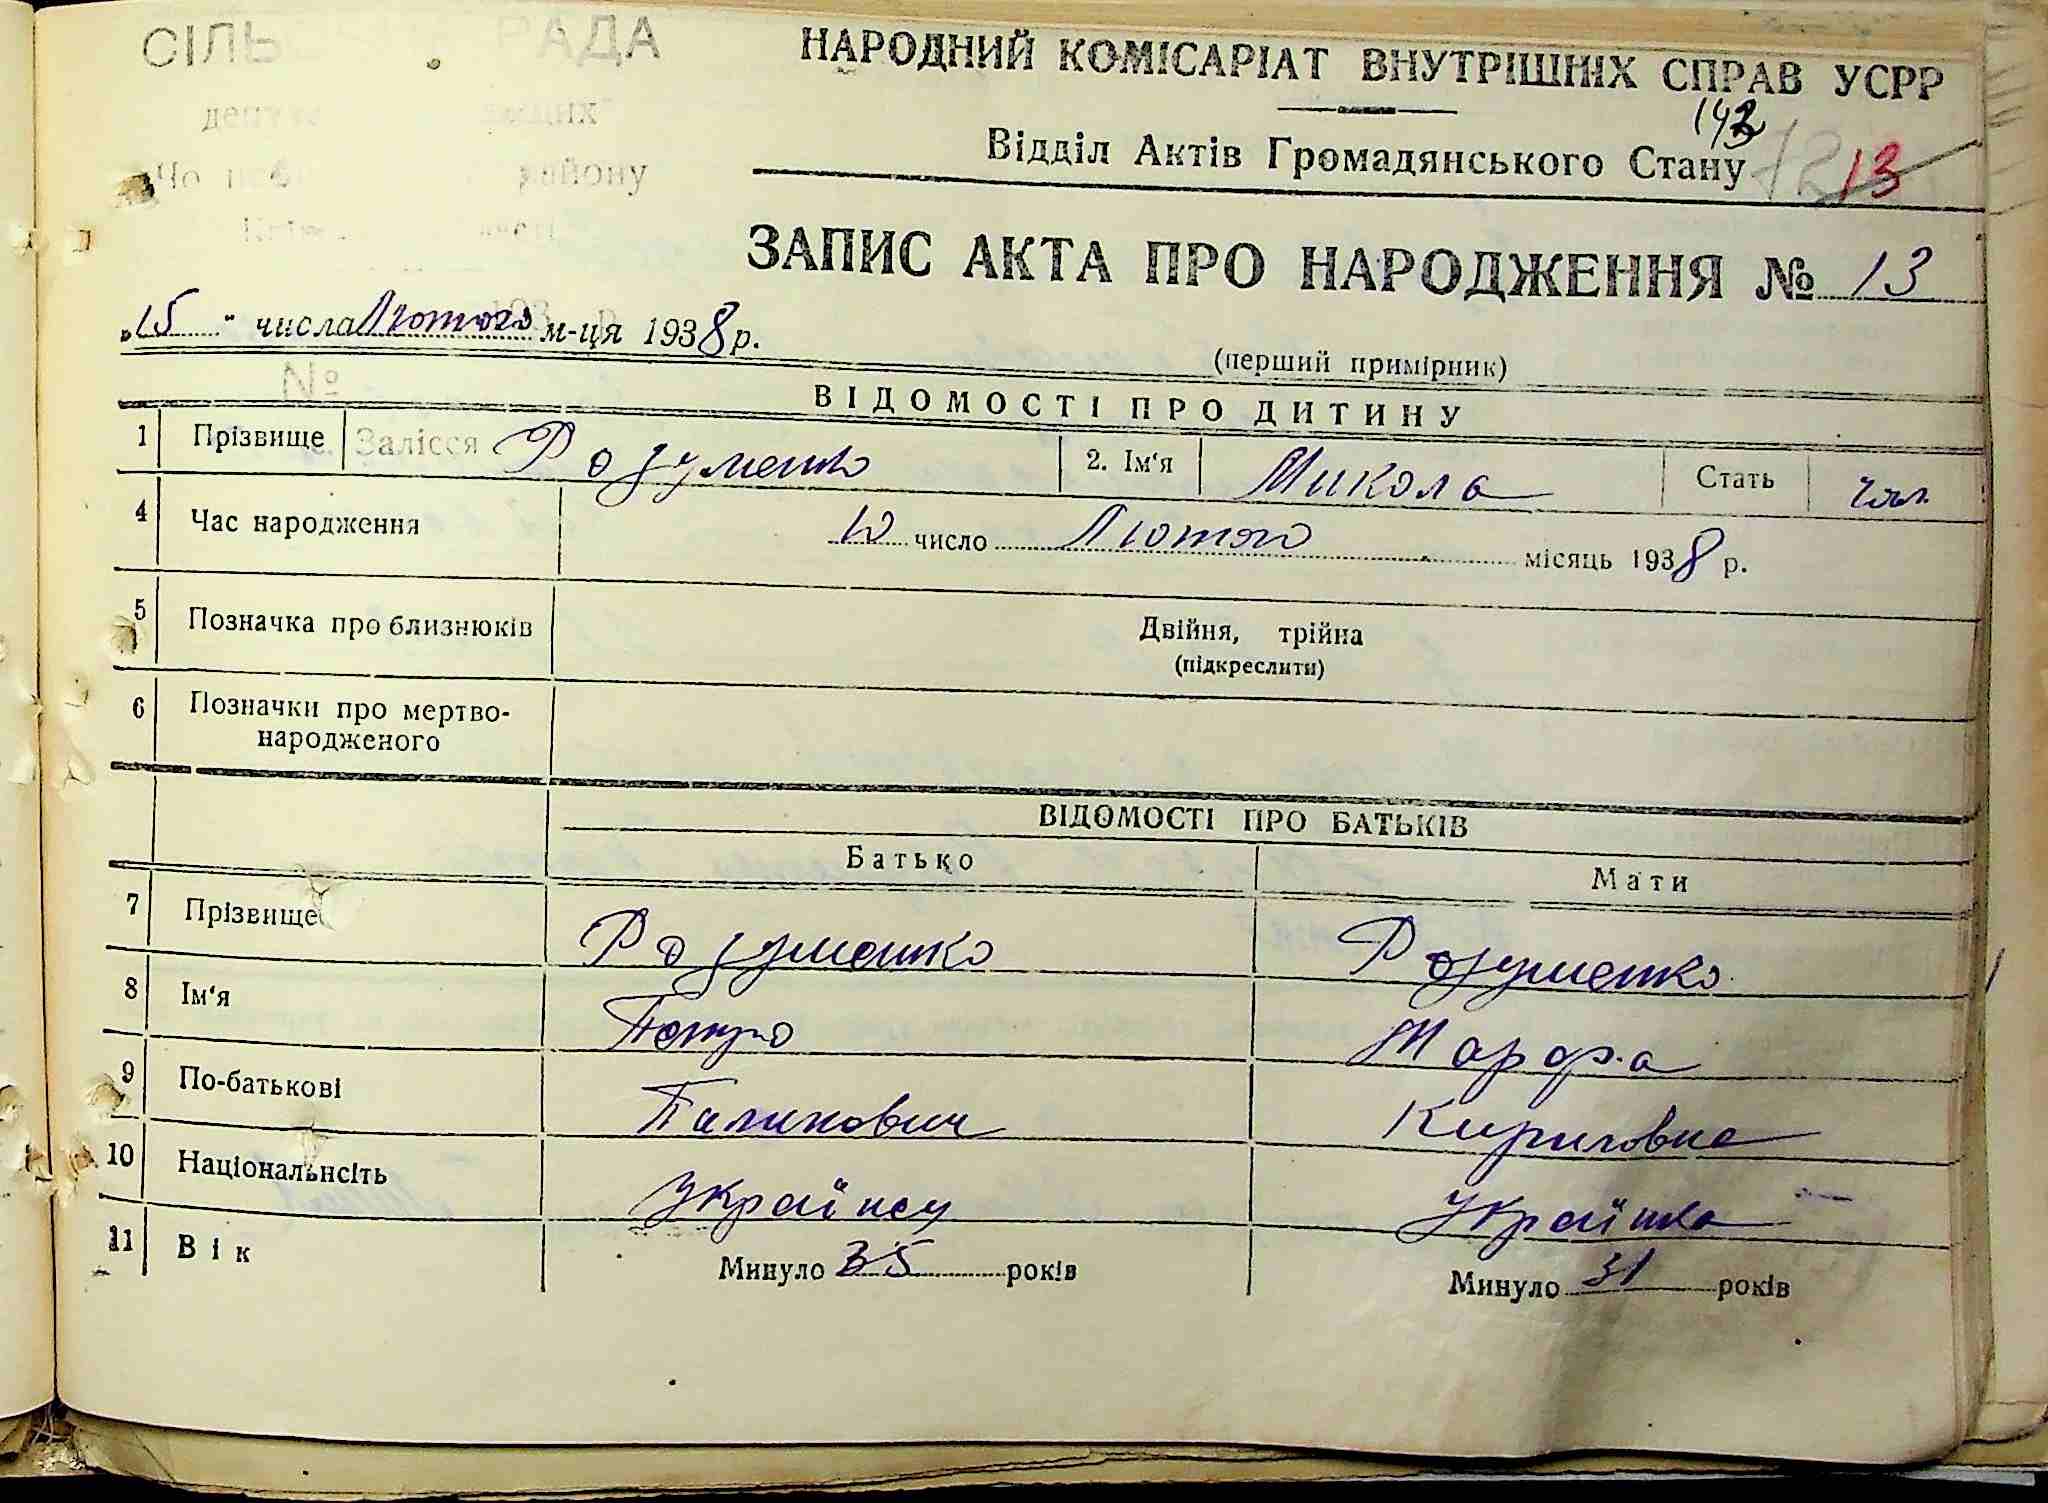 СІЛЬ РАДА
НАРОДНИЙ КОМІСАРІАТ ВНУТРІШНІХ СПРАВ УСРР
142
Відділ Актів Громадянського Стану 13
району
ЗАПИС АКТА ПРО НАРОДЖЕННЯ № 13
„15" числа Лютого м-ця 1938 р.
(перший примірник)
№
ВІДОМОСТІ ПРО ДИТИНУ
1 Прізвище Залісся Розуменко 2. Ім'я Микола Стать чол.
4 Час народження 10 число Лютого місяць 1938 р.
5 Позначка про близнюків Двійня, трійна
(підкреслити)
6 Позначки про мертво-
народженого
ВІДОМОСТІ ПРО БАТЬКІВ
Батько Мати
7 Прізвище Розуменко Розуменко
8 Ім'я Петро Марфа
9 По-батькові Кириловна
10 Національнсіть Українец Українка
11 Вік Минуло 35 років Минуло 31 років